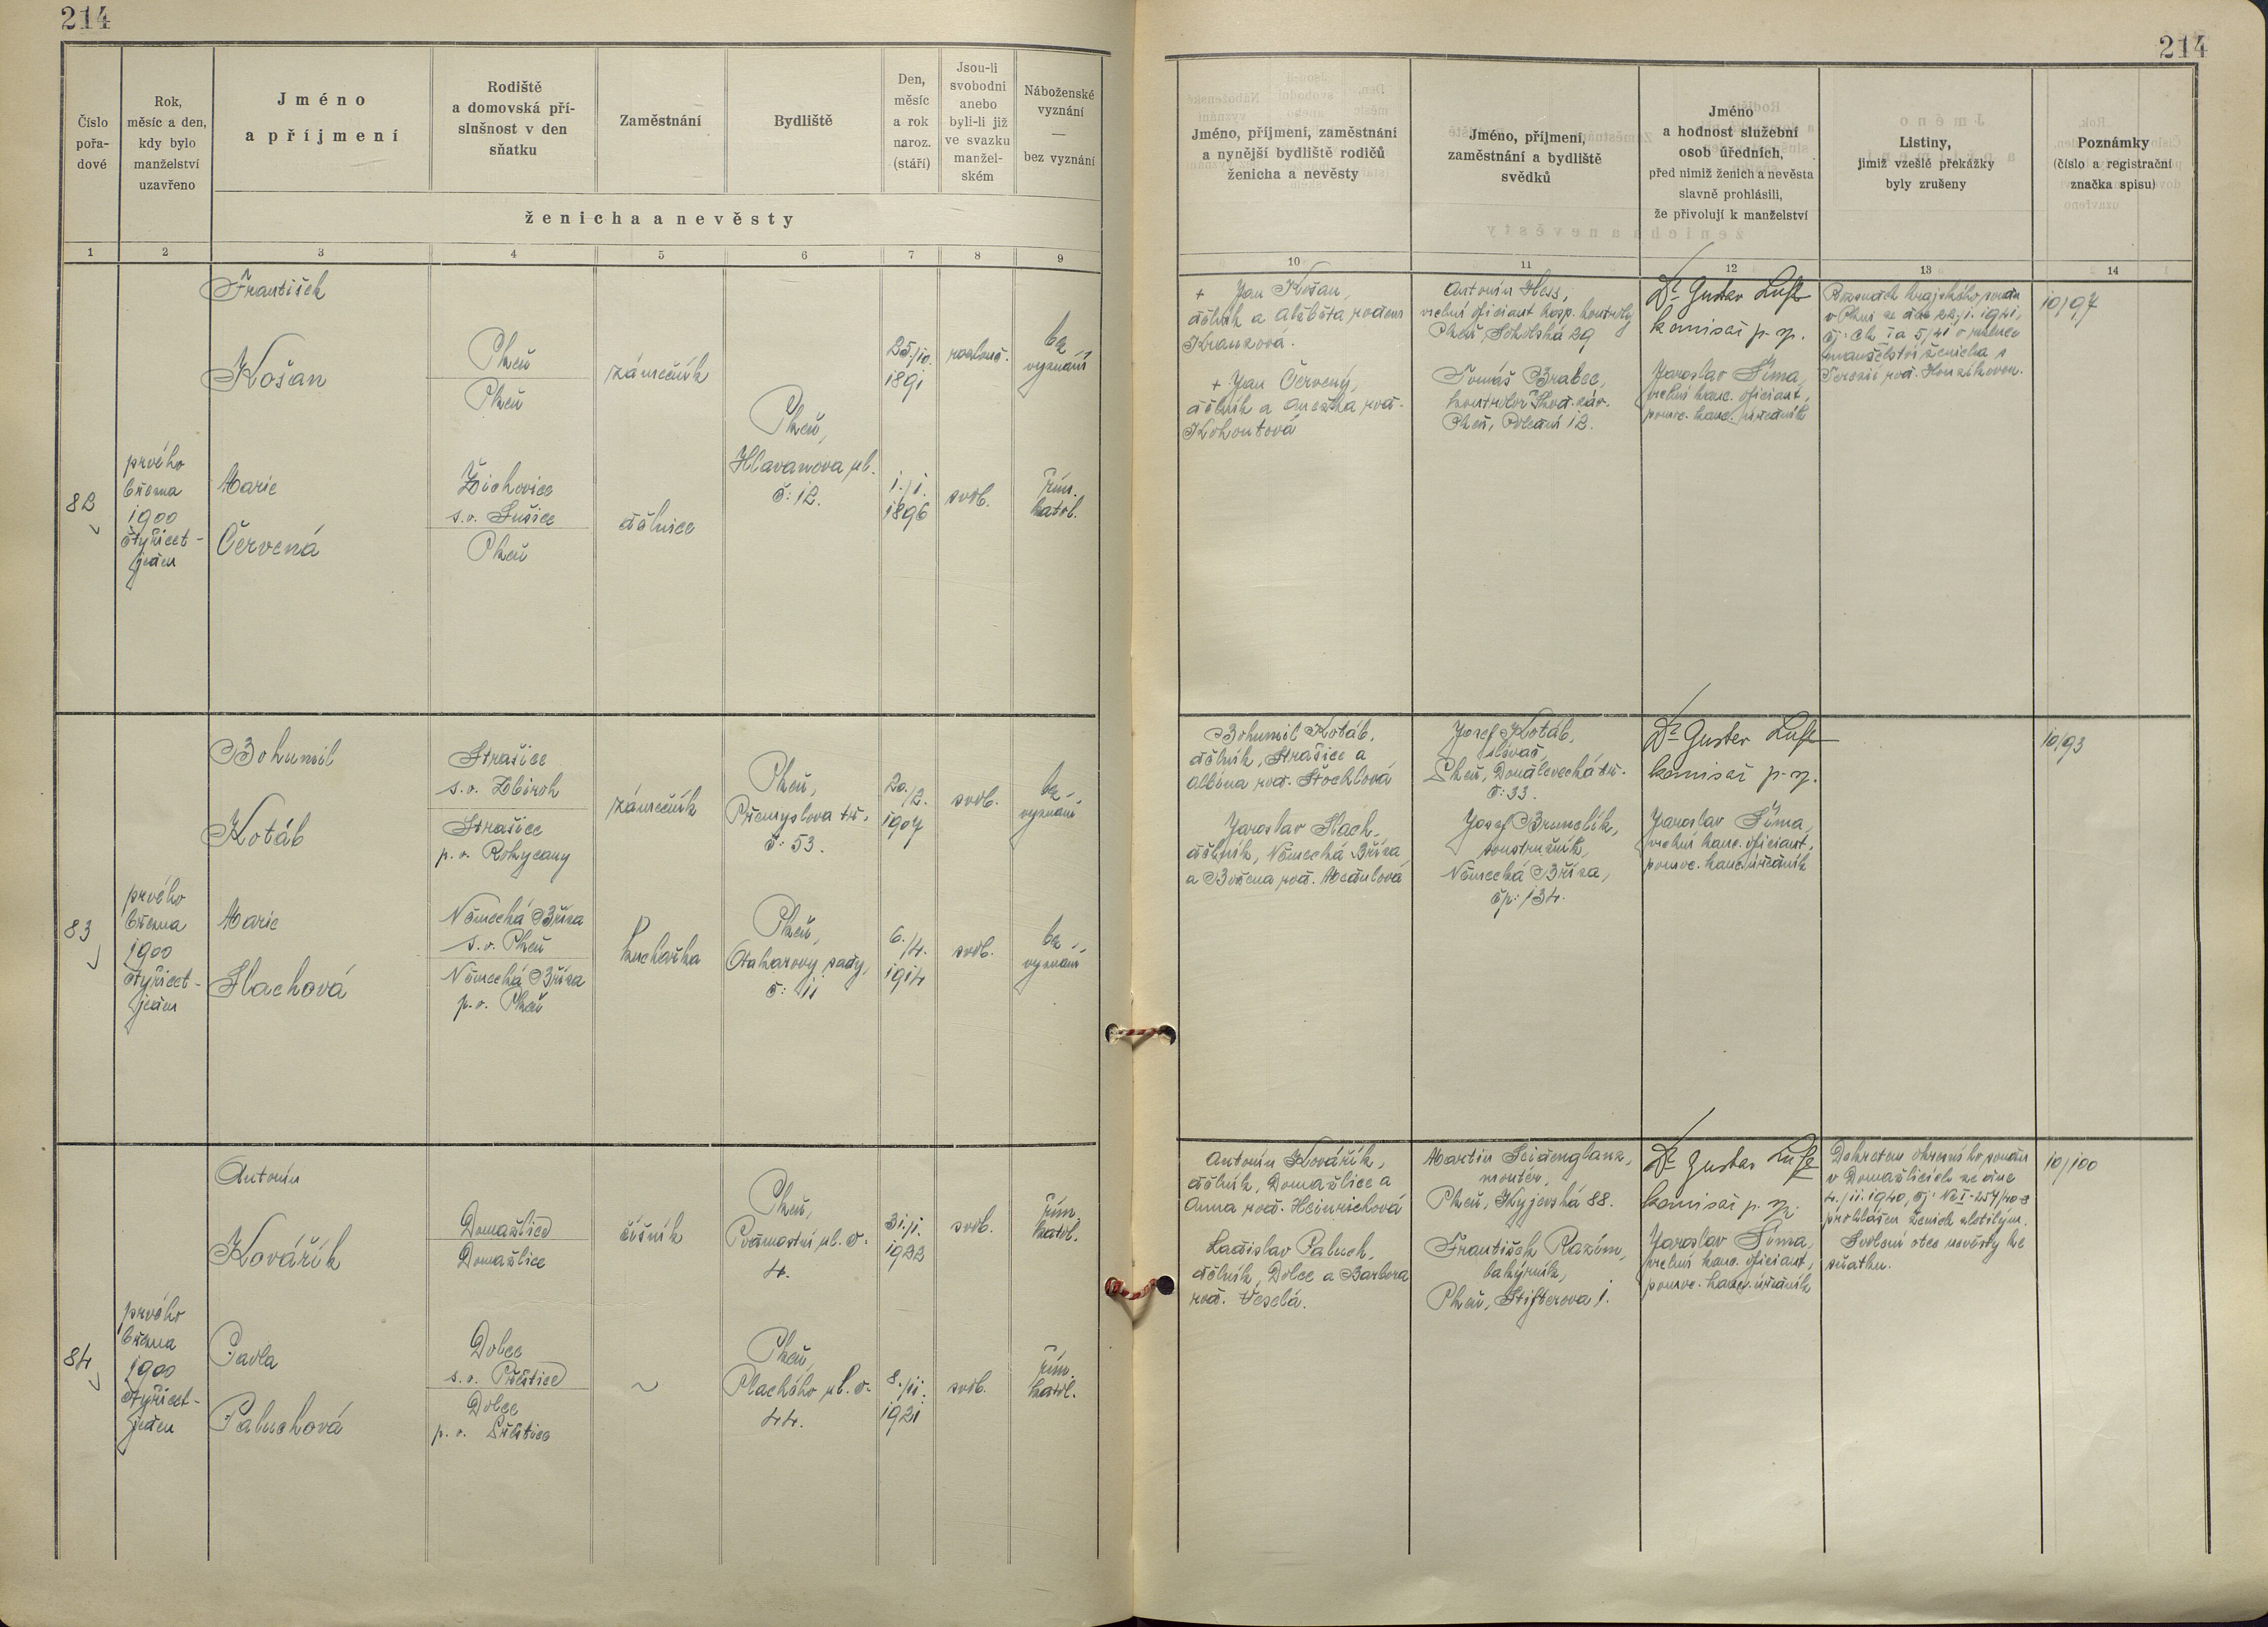 214
214
Číslo
pořa-
dové
Rok,
měsíc a den,
kdy bylo
manželství
uzavřeno
Jméno
a příjmení
Rodiště
a domovská pří-
slušnost v den
sňatku
Zaměstnání
Bydliště
Den,
měsíc
a rok
naroz.
(stáří)
Jsou-li
svobodni
anebo
byli-li již
ve svazku
manžel-
ském
Náboženské
vyznání
—
bez vyznání
ženicha a nevěsty
1 2 3 4 5 6 7 8 9
Jméno, příjmení, zaměstnání
a nynější bydliště rodičů
ženicha a nevěsty
Jméno, příjmení,
zaměstnání a bydliště
svědků
Jméno
a hodnost služební
osob úředních,
před nimiž ženich a nevěsta
slavně prohlásili,
že přivolují k manželství
Listiny,
jimiž vzešlé překážky
byly zrušeny
Poznámky
(číslo a registrační
značka spisu)
10 11 12 13 14
82
prvého
března
1900
čtyřicet-
jeden
František
Košan
Plzeň
Plzeň
zámečník
25./10.
1891
rozlouč.
bez
vyznání
Plzeň,
Hlavanova ul.
č: 12.
Marie
Červená
Žichovice
s.o. Sušice
Plzeň
dělnice
1./1.
1896
svob.
řím.
katol.
+ Jan Košan,
dělník a Alžběta rozená
Kranzová.
+ Jan Červený,
dělník a Anežka roz.
Kohoutová
Antonín Hess,
vrchní oficiant hosp. kontroly
Plzeň, Sokolská 29
Tomáš Brabec,
kontrolor Škod. záv.
Plzeň, Polední 12.
Dr Gustav
komisař p. sp.
Jaroslav Šíma,
vrchní kanc. oficiant,
pomoc. kanc. úředník
Rozsudek krajského soudu
v Plzni ze dne 22./1. 1941,
čj: Ck I a 5/41 o rozluce
manželství ženicha s
Terezií roz. Honzíkovou.
10/97
83
prvého
března
1900
čtyřicet-
jeden
Bohumil
Kotáb
Strašice
s.o. Zbiroh
Strašice
p.o. Rokycany
zámečník
Plzeň,
Přemyslova tř.
č: 53.
20./2.
1907
svob.
bez
vyznání
Marie
Slachová
Německá Bříza
s.o. Plzeň
Německá Bříza
p.o. Plzeň
kuchařka
Plzeň,
Otakarovy sady,
č: 11
6./4.
1914
svob.
bez
vyznání
Bohumil Kotáb,
dělník, Strašice a
Albína roz. Štochlová
Jaroslav Slach,
dělník, Německá Bříza
a Božena roz. Medulová
Josef Kotáb,
slévač,
Plzeň, Doudlevecká tř.
č: 33.
Josef Brunclík,
soustružník,
Německá Bříza,
čp: 134.
Dr Gustav
komisař p. sp.
Jaroslav Šíma,
vrchní kanc. oficiant,
pomoc. kanc. úředník
10/93
84
prvého
března
1900
čtyřicet-
jeden
Antonín
Kovářík
Domažlice
Domažlice
číšník
Plzeň,
Prámostní ul. č.
4.
31./1.
1922
svob.
řím.
katol.
Pavla
Paluchová
Dolce
s.o. Přeštice
Dolce
p.o. Přeštice
~
Plzeň,
Plachého ul. č.
44.
8./11.
1921
svob.
řím.
katol.
Antonín Kovářík,
dělník, Domažlice a
Anna roz. Heinrichová
Ladislav Paluch,
dělník, Dolce a Barbora
roz. Veselá.
Martin Seidenglanz,
montér,
Plzeň, Kyjevská 88.
František Razím,
Plzeň, Stifterova 1.
Dr Gustav
komisař p. sp.
Jaroslav Šíma,
vrchní kanc. oficiant,
pomoc. kanc. úředník
Dekretem okresního soudu
v Domažlicích ze dne
4./11. 1940, čj: Nc I-254/40-3
prohlášen ženich zletilým.
Svolení otce nevěsty ke
sňatku.
10/100